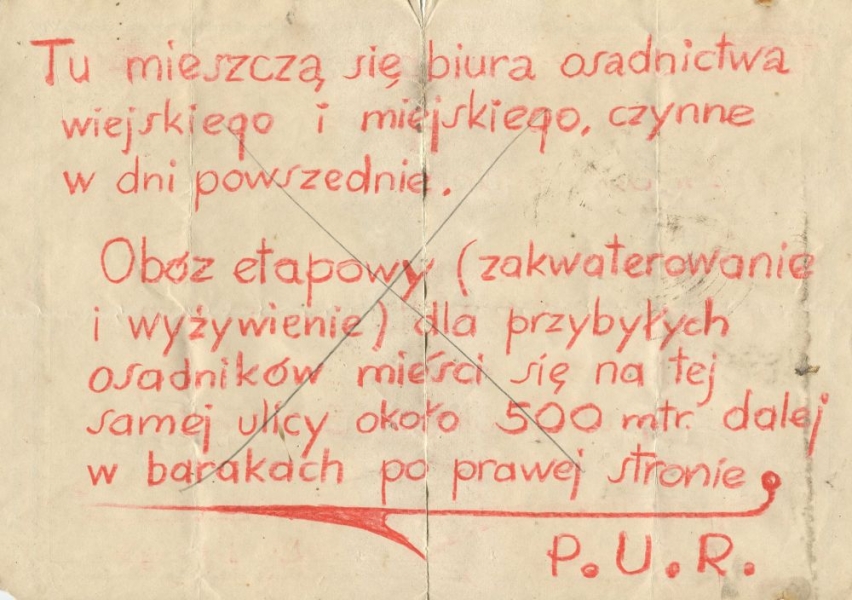 Tu mieszczą się biura osadnictwa
wiejskiego i miejskiego, czynne
w dni powszednie.
Obóz etapowy (zakwaterowanie
i wyżywienie) dla przybyłych
osadników mieści się na tej
samej ulicy około 500 mtr. dalej
w barakach po prawej stronie
P.U.R.